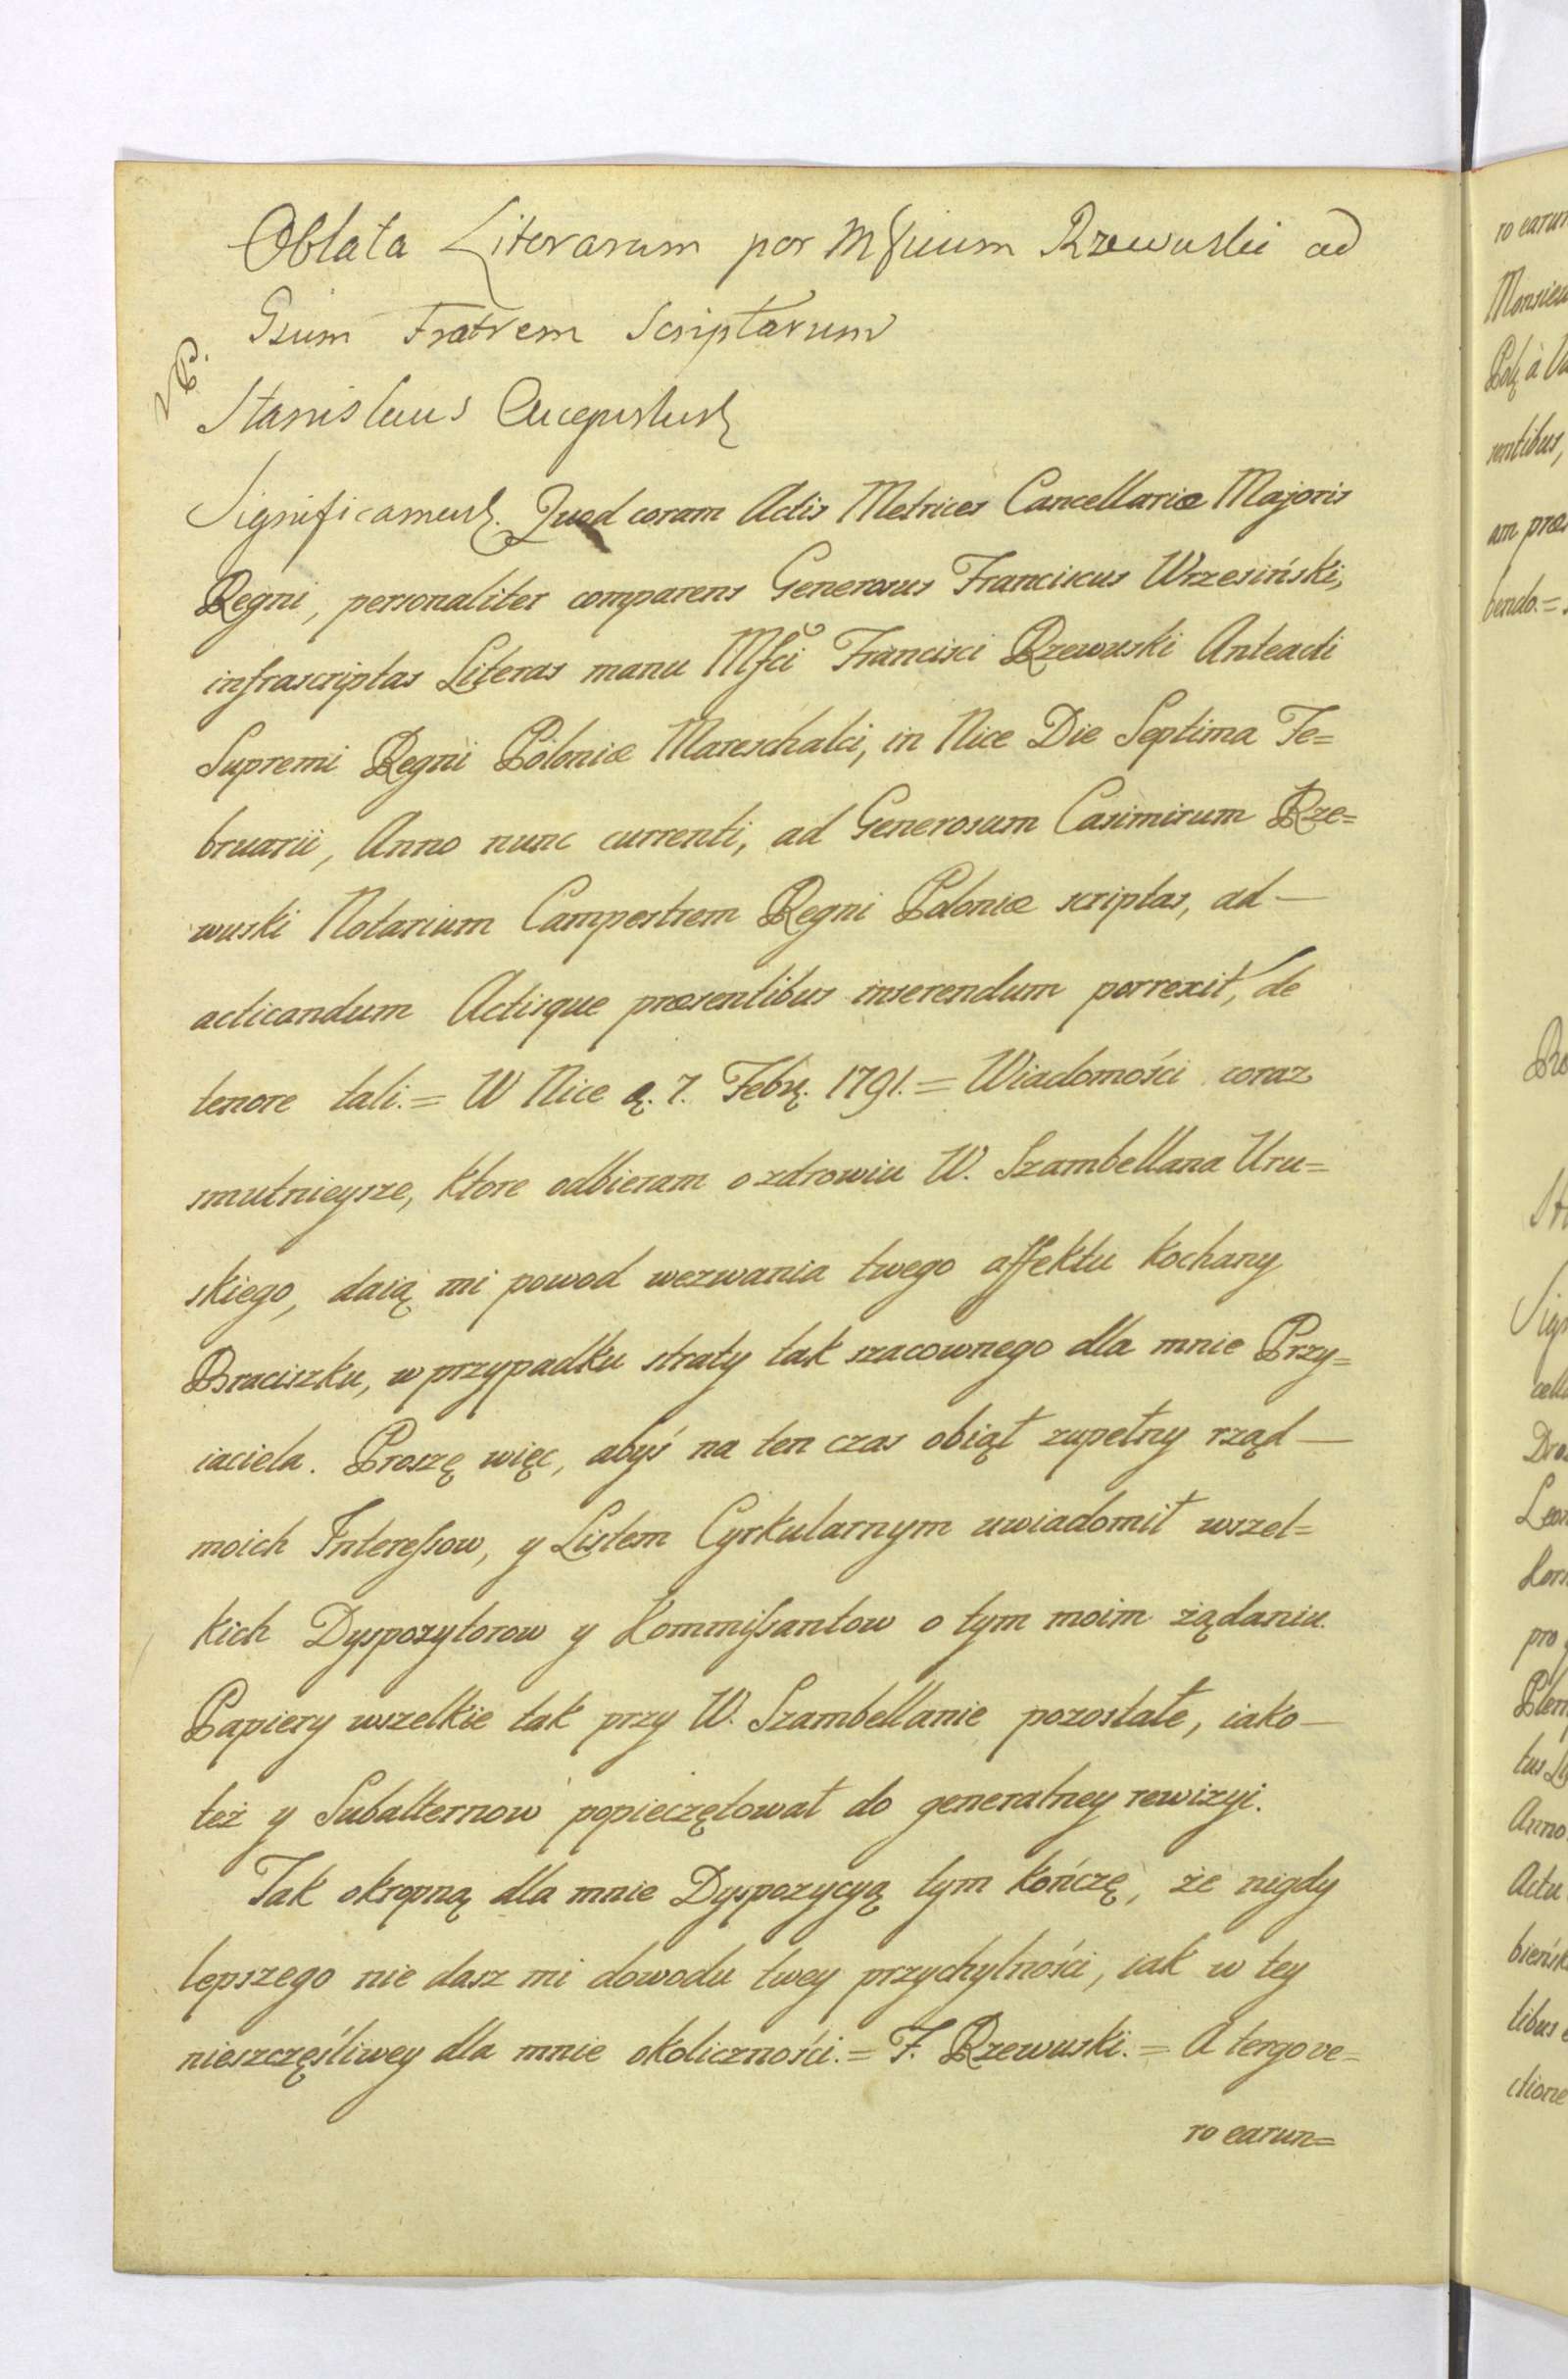 Oblata Literarum per Mfcum Rzewuski ad
Gsum Fratrem Scriptarum
Stanislaus Augustus
Significamus. Quod coram Actis Metrices Cancellariæ Majoris
Regni, personaliter comparens Generosus Franciscus Wrzesiński,
infrascriptas Literas manu Mfci Francisci Rzewuski Anteacti
Supremi Regni Poloniæ Mareschalci, in Nice Die Septima Fe=
bruarii, Anno nunc currenti, ad Generosum Casimirum Rze=
wuski Notarium Campestrem Regni Poloniæ scriptas, ad—
acticandum Actisque præsentibus inserendum porrexit, de
tenore tali.= W Nice d. 7. Febr. 1791.= Wiadomości coraz
smutnieysze, ktore odbieram o zdrowiu W. Szambellana Uru=
skiego, daią mi powod wezwania twego affektu kochany
Braciszku, w przypadku straty tak szacownego dla mnie Przy=
iaciela. Proszę więc, abyś na ten czas obiął zupełny rząd—
moich Interessow, y Listem Cyrkularnym uwiadomił wszel=
kich Dyspozytorow y Kommissantow o tym moim żądaniu.
Papiery wszelkie tak przy W. Szambellanie pozostałe, iako—
też y Subalternow popieczętował do generalney rewizyi.
Tak okropną dla mnie Dyspozycyą tym kończę, że nigdy
lepszego nie dasz mi dowodu twey przychylności, iak w tey
nieszczęśliwey dla mnie okoliczności.= F. Rzewuski.= A tergo ve=
ro earun=
ro earun
Monsieu
sentibus,
am præ
bendo.=
Sig
cella
pro
tus
Anno
Actu
bieńsk
tibus
ctione